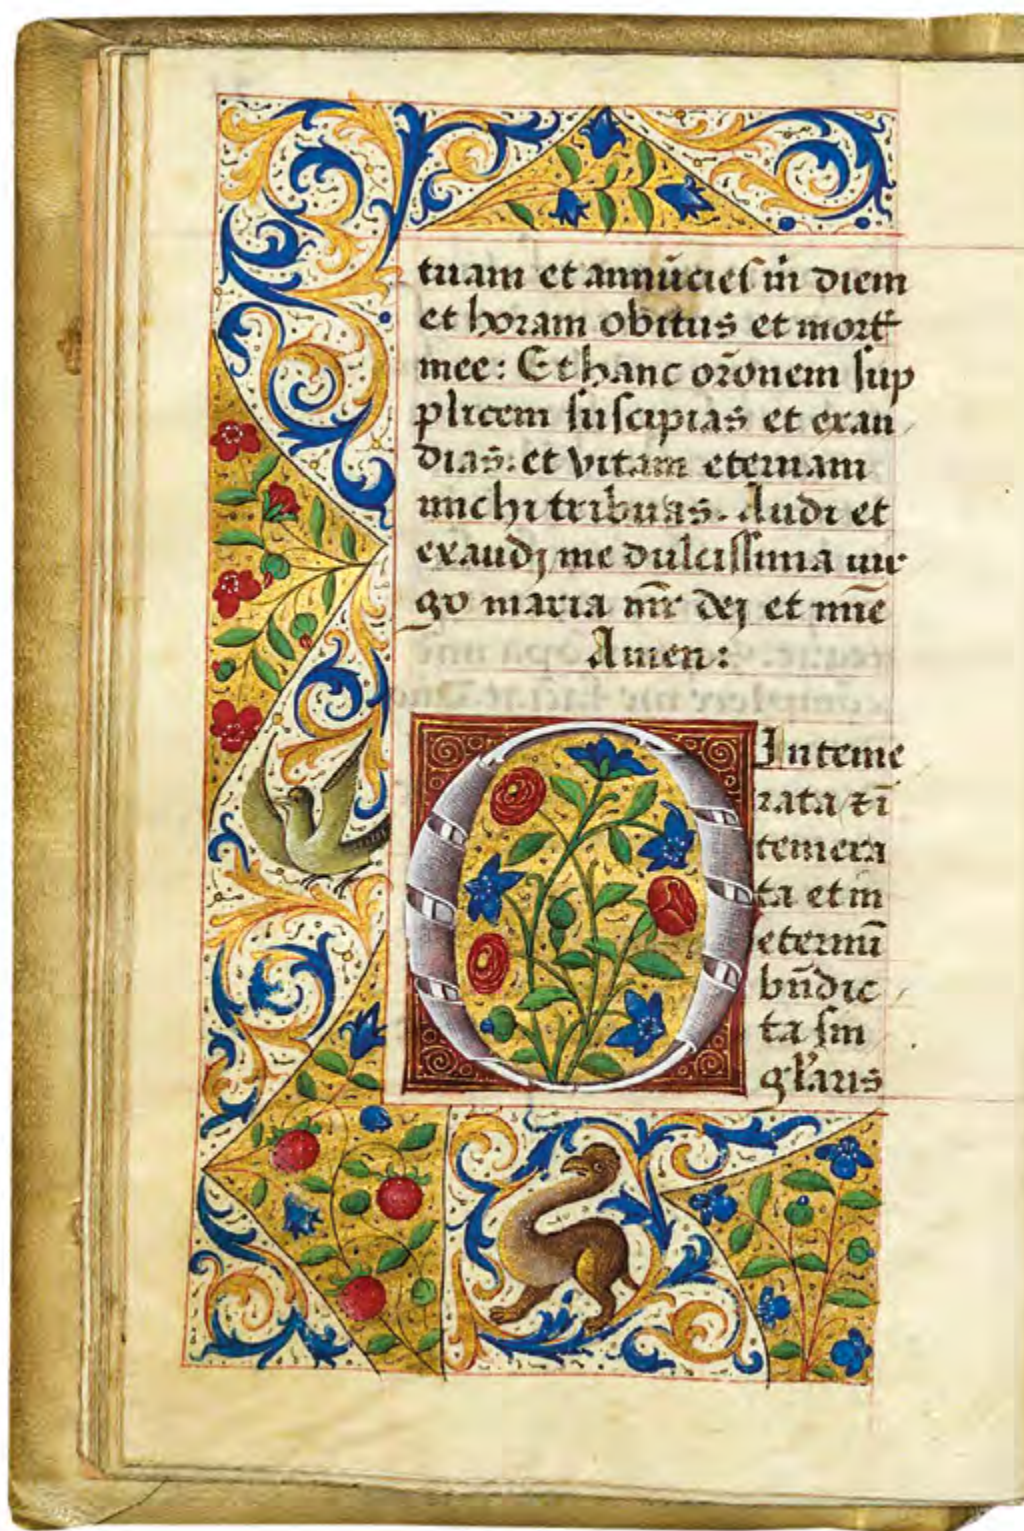 tuam et annūcies m̄ diem
et horam obitus et mort̄
mee: Et hanc or̄onem sup
plicem suscipias et exau
dias: et vitam eternam
michi tribuas. Audi et
exaudj me dulcissima uir
go maria mr̄ˉ dej et mīe
Amen:
O Inteme
rata / et ī
temera
ta et in
eternū
bn̄dic
ta sin
gl'aris